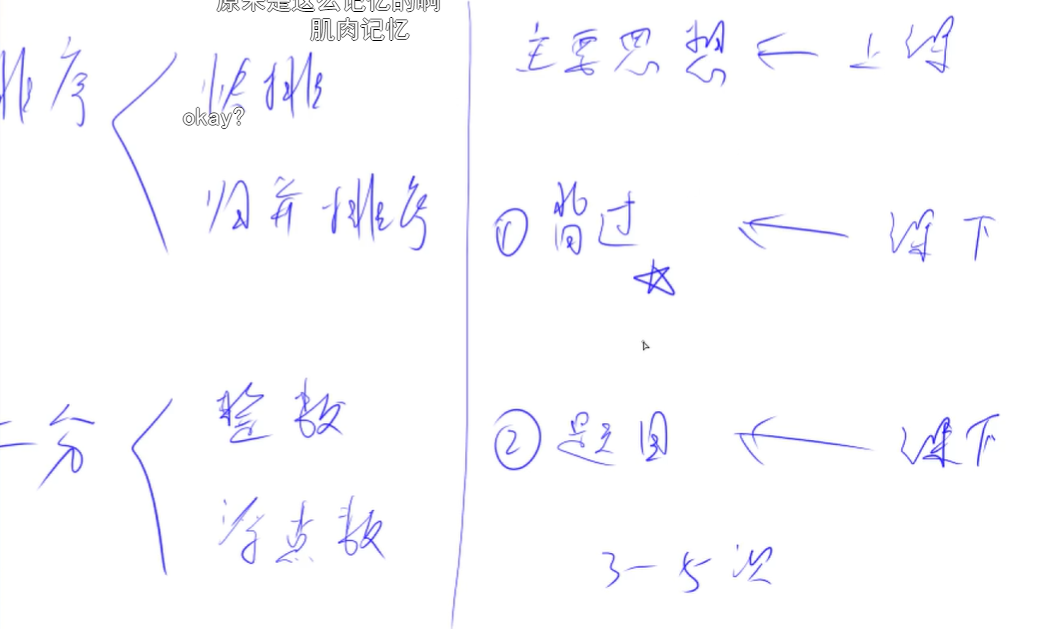 原来是这么记忆的啊
肌肉记忆
排序
快排
okay?
归并排序
二分
整数
浮点数
主要思想 ← 上课
① 背过 ← 课下
② 题目 ← 课下
3-5次